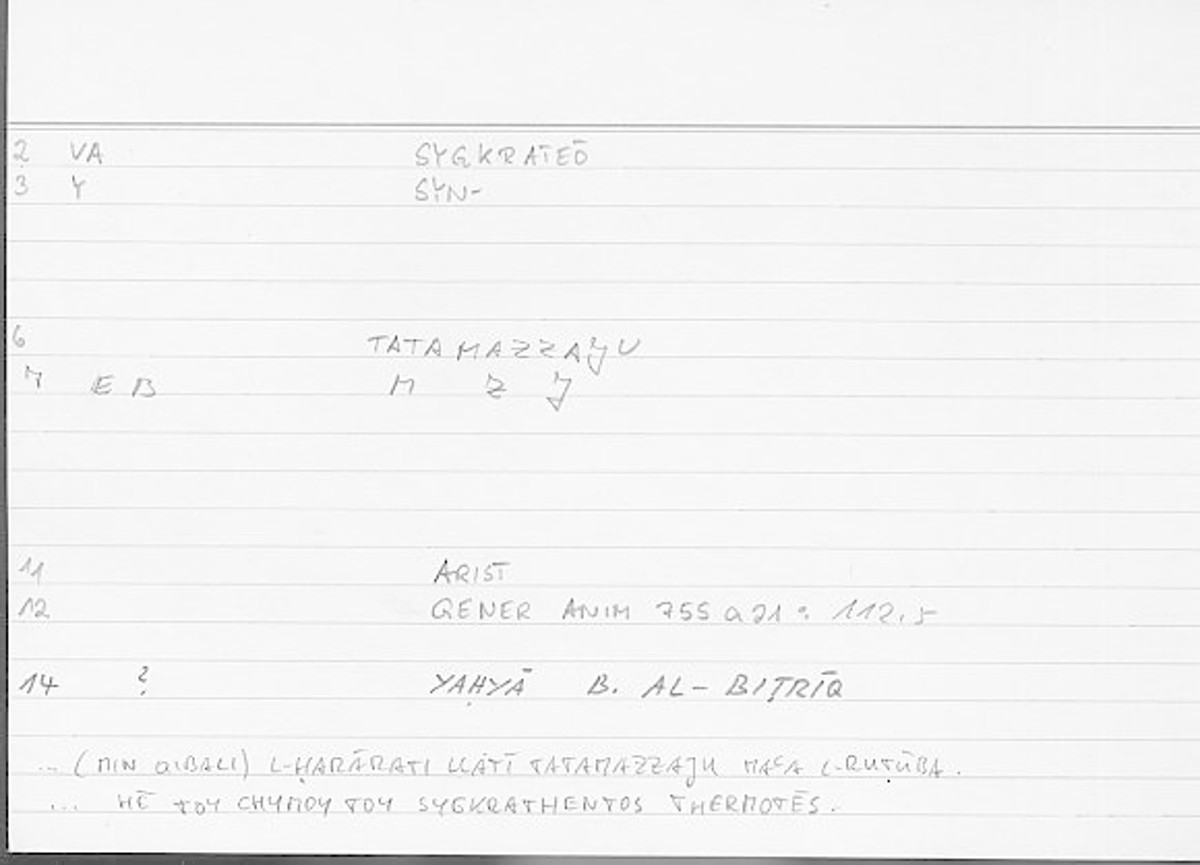 2 VA SYGKRATEŌ
3 Y SYN-
6 TATAMAZZAJU
7 E B M Z J
11 ARIST
12 GENER ANIM 755 a 21 : 112.5
14 ? YAḤYĀ B. AL-BIṬRĪQ
... (MIN QIBALI) L-ḤARĀRATI LLĀTĪ TATAMAZZAJU MAʿA L-RUṬŪBA.
... HĒ TOY CHYMOY TOY SYGKRATHENTOS THERMOTĒS.